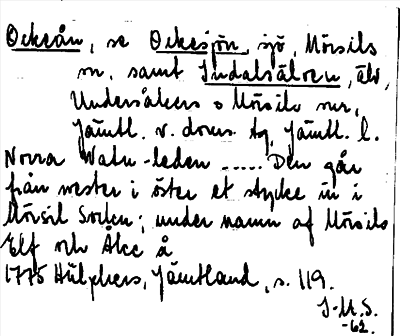 Ockeån, se Ockesjön, sjö, Mörsils
sn, samt Indalsälven, älv,
Undersåkers o Mörsils snr,
Jämtl. v. doms tg, Jämtl. l.
Norra Watu-leden ..... Den går
från wester i öster et stycke in i
Mörsil Socken; under namn af Mörsils
Elf och Åcke å
1775 Hülphers, Jämtland, s. 119.
J-M.S.
-62.